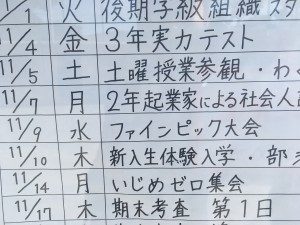 火 後期学級組織スタ
11/4 金 3年実力テスト
11/5 土 土曜授業参観・わく
11/7 月 2年起業家による社会人
11/9 水 ファインピック大会
11/10 木 新入生体験入学・部
11/14 月 いじめゼロ集会
11/17 木 期末考査 第1日